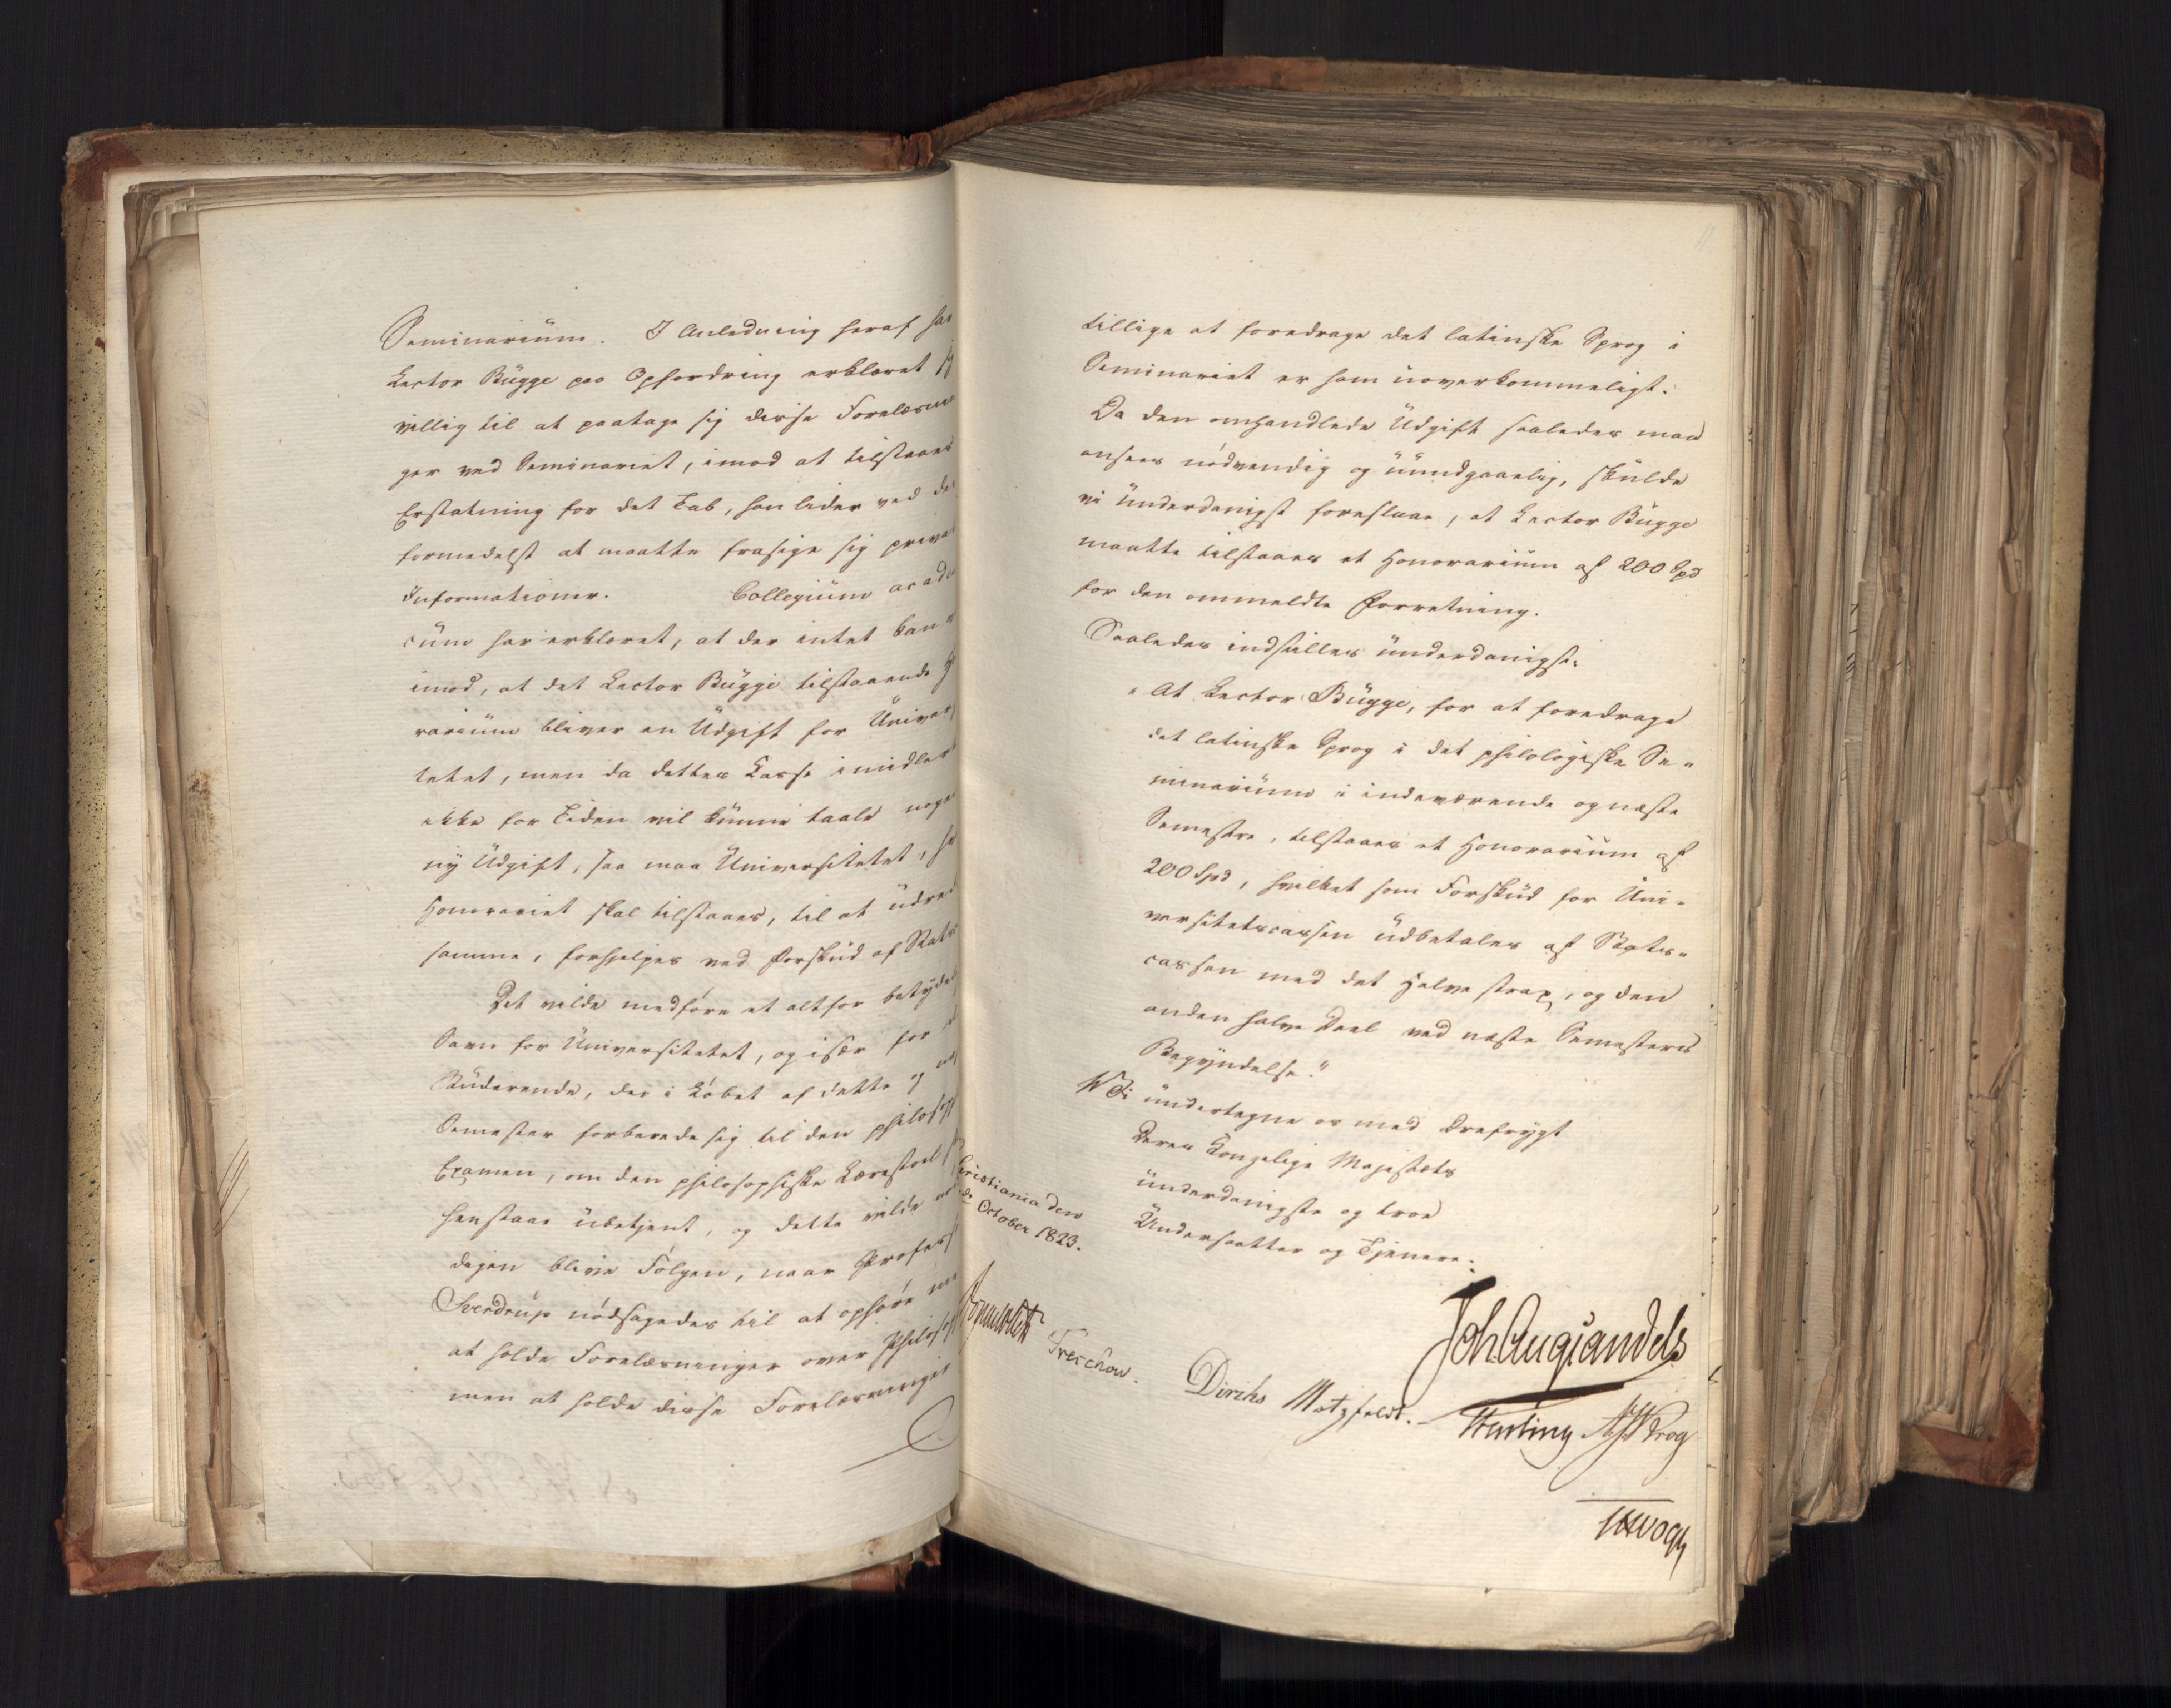 Seminarium. I Anledning heraf har
Lector Bugge paa Opfordring erklæret sig
villig til at paatage sig disse Forelæsnin
ger ved Seminariet, imod at tilstaaes
Erstatning for det Tab, han lider ved de
formedelst at maatte frasige sig privat
Informationer. Collegium acade
cum har erklæret, at der intet kan
imod, at det Lector Bugge tilstaaende Ho
rarium bliver en Udgift for Univers
tetet, men da dettes Kasse imidlert
ikke for Tiden vil kunne taale noge
ny Udgift, saa maa Universitetet,
Honorariet skal tilstaaes, til at udred
samme, forhjelpes ved Forskud af Stats
Det vilde medføre et altfor betydel
Savn for Universitetet, og især for
Studerende, der i Løbet af dette og
Semester forberede sig til den philosoph
Examen, om den philosophiske Lærestoel
henstaae ubetjent, og dette vilde
digen blive Følgen, naar Profess
Sverdrup nødsagedes til at ophøre
at holde Forelæsninger over Philosop
men at holde disse Forelæsninger
tillige at foredrage det latinske Sprog i
Seminariet er ham uoverkommeligt.
Da den omhandlede Udgift saaledes maa
ansees nødvendig og uundgaaelig, skulde
vi underdanigst foreslaae, at Lector Bugge
maatte tilstaaes et Honorarium af 200 Spd
for den ommeldte Forretning.
Saaledes indstilles underdanigst:
"At Lector Bugge, for at foredrage
det latinske Sprog i det philologiske Se-
minarium i indeværende og næste
Semestre, tilstaaes et Honorarium af
200 Spd, hvilket som Forskud for Uni-
versitetscassen udbetales af Stats-
cassen med det Halve strax, og den
anden halve Deel ved næste Semesters
Begyndelse."
Vi undertegne os med Ærefrygt
Deres Kongelige Majestæts
underdanigste og troe
Undersaatter og Tjenere:
Christiania den
October 1823.
Joh Aug Sandels
Sommerhielm Treschow. Diriks Motzfeldt. Hersleb Krog
JH Vogt